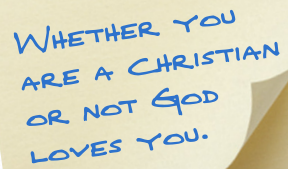 Whether you
are a Christian
or not God
loves you.